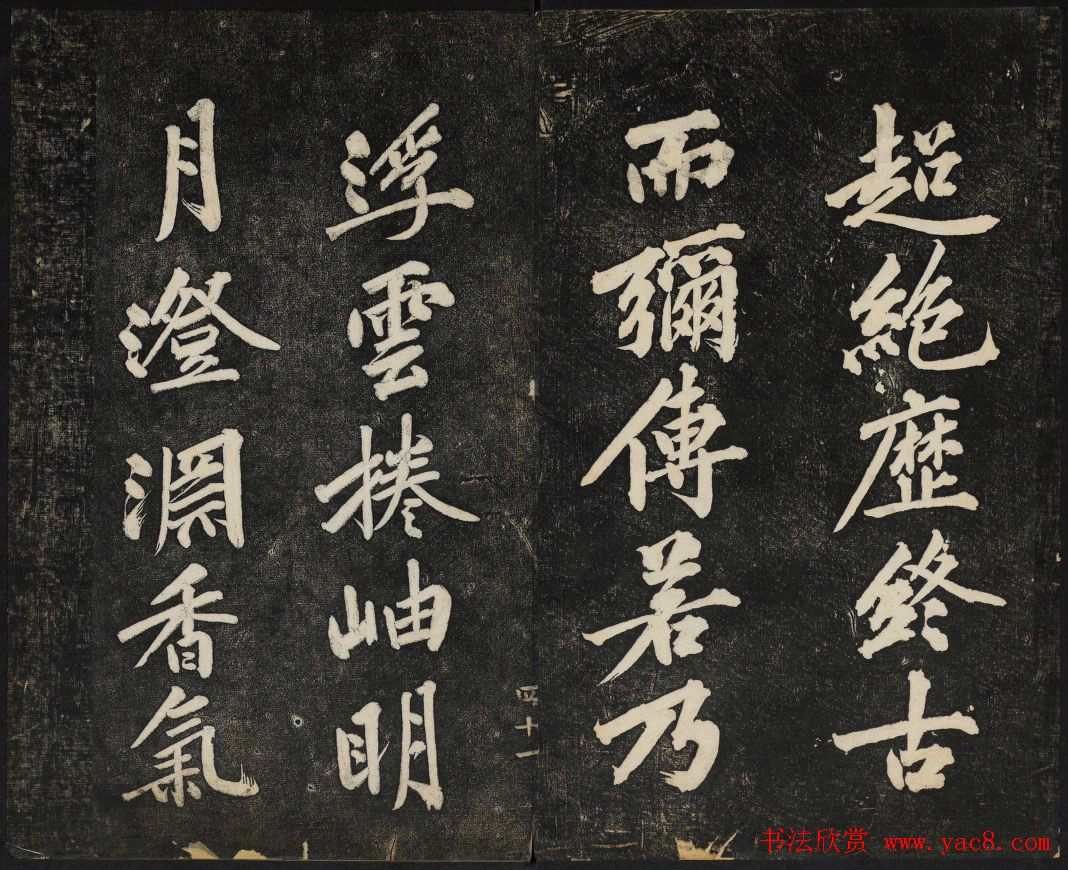 超絶歷終古
而彌傳若乃
四十一
浮雲捲岫明
月澄淵香氣
书法欣赏 www.yac8.com